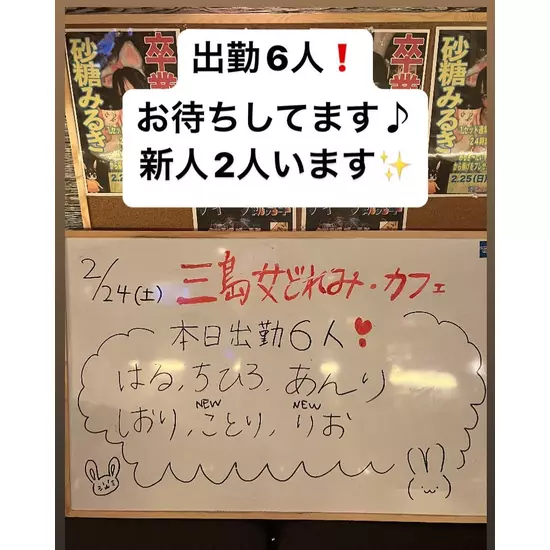 出勤6人❗
お待ちしてます♪
新人2人います✨
卒業
砂糖みるき
卒業
砂糖みるき
2.25(日)
2.25(日)
2/24(土) 三島女どれみ・カフェ
本日出勤6人
はる、ちひろ、あんり
NEW NEW
しおり、ことり、りお